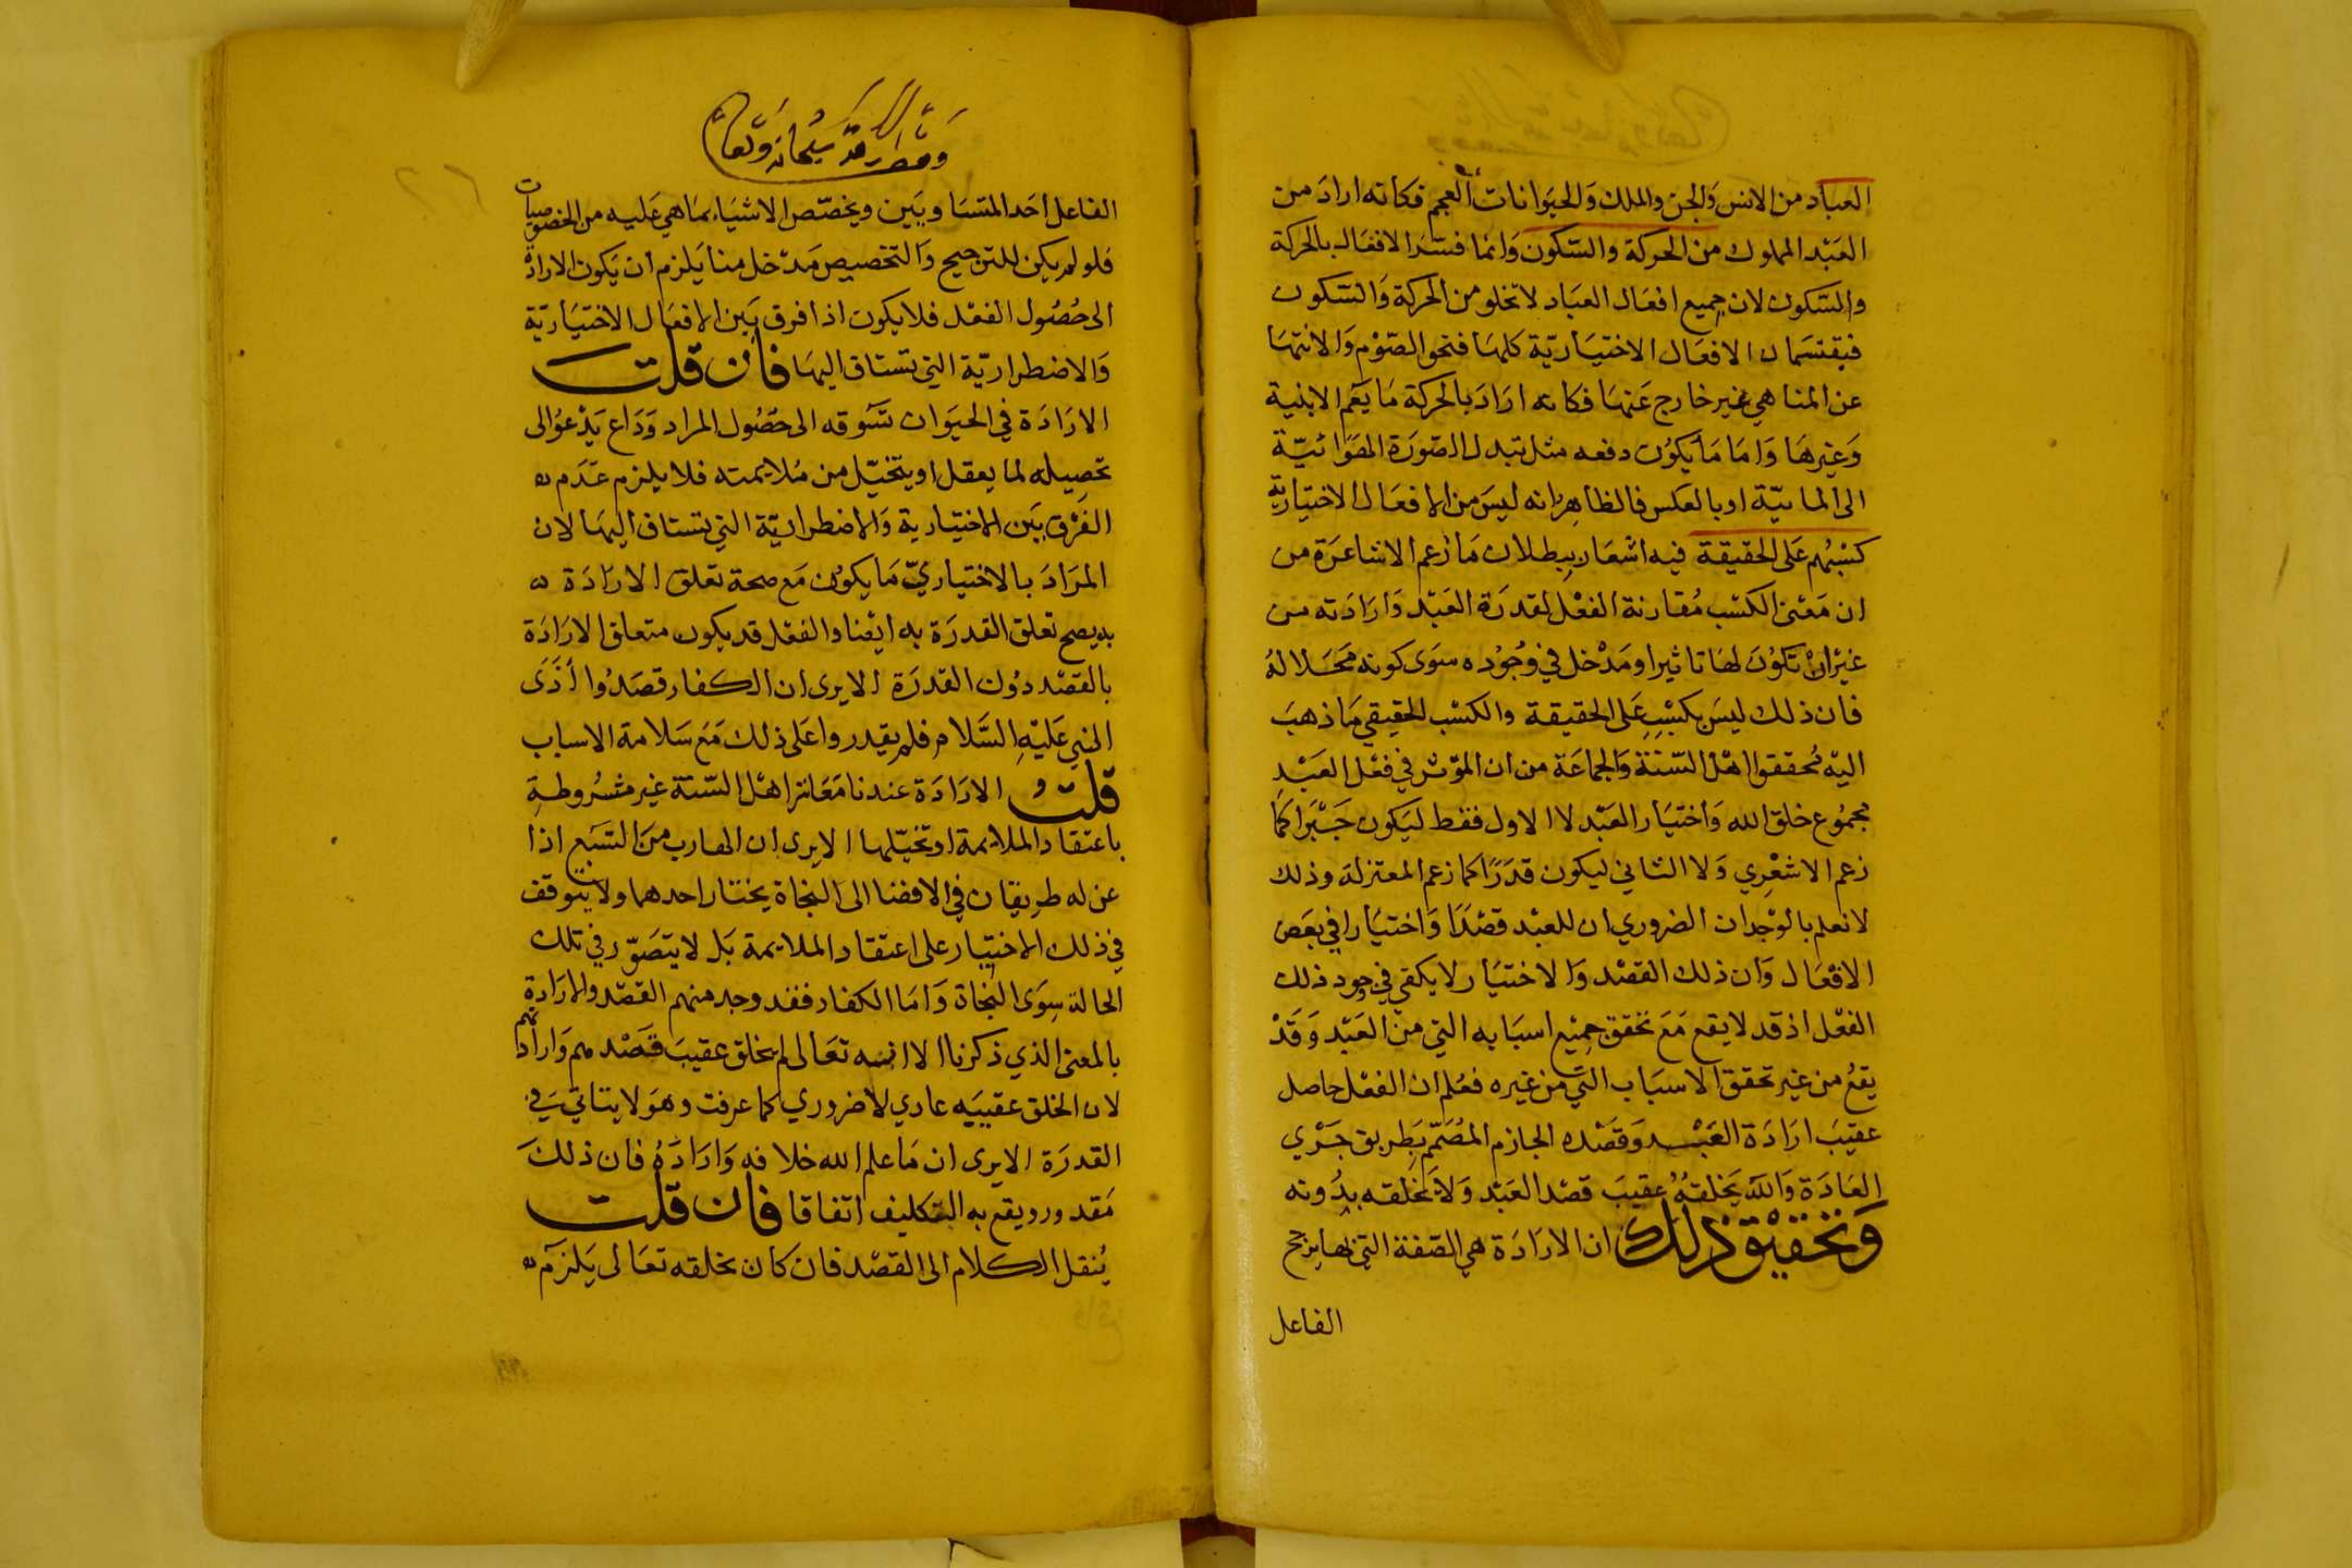 العباد من الانس والجن والملك والحيوانات العجم فكانه اراد من
العبد المملوك من الحركة والسكون وانما فسر الافعال بالحركة
والسكون لان جميع افعال العباد لا تخلو من الحركة والسكون
فيقتسمان الافعال الاختيارية كلها فنحو الصوم والانتها
عن المناهي غير خارج عنها فكانه اراد بالحركة ما يعم الابنية
وغيرها واما ما يكون دفعه مثل تبدل الصورة الهوائية
الى المائية او بالعكس فالظاهر انه ليس من الافعال الاختيارية
كسبهم على الحقيقة فيه اشعار ببطلان ما زعم الاشاعرة من
ان معنى الكسب مقارنة الفعل لقدرة العبد وارادته من
غير ان تكون لها تاثيرا ومدخل في وجوده سوى كونه محلا له
فان ذلك ليس بكسب على الحقيقة والكسب الحقيقي ما ذهب
اليه محققوا اهل السنة والجماعة من ان المؤثر في فعل العبد
مجموع خلق الله واختيار العبد لا الاول فقط ليكون جبرا كما
زعم الاشعري ولا الثاني ليكون قدرا كما زعم المعتزلة وذلك
لانعلم بالوجدان الضروري ان للعبد قصدا واختيارا في بعض
الافعال وان ذلك القصد والاختيار لا يكفي في وجود ذلك
الفعل اذ قد لا يقع مع تحقق جميع اسبابه التي من العبد وقد
يقع من غير تحقق الاسباب التي من غيره فعلم ان الفعل حاصل
عقيب ارادة العبد وقصده الجازم المصمم بطريق جري
العادة والله يخلقه عقيب قصد العبد ولا يخلقه بدونه
وتحقيق ذلك ان الارادة هي الصفة التي بها يرجح
الفاعل
وقف لله سبحانه وتعالى
الفاعل احد المتساويين ويخصص الاشياء بما هي عليه من الخصوصيات
فلو لم يكن للترجيح والتخصيص مدخل منا يلزم ان يكون الارادة
الى حصول الفعل فلا يكون اذا فرق بين الافعال الاختيارية
والاضطرارية التي تشتاق اليها فان قلت
الارادة في الحيوان تشوقه الى حصول المراد وداع يدعو الى
تحصيله لما يعقل او يتخيل من ملايمته فلا يلزم عدم
الفرق بين الاختيارية والاضطرارية التي تشتاق اليها لان
المراد بالاختياري ما يكون مع صحة تعلق الارادة
به يصح تعلق القدرة به ايضا والفعل قد يكون متعلق الارادة
بالقصد دون القدرة الا يرى ان الكفار قصدوا أذى
النبي عليه السلام فلم يقدروا على ذلك مع سلامة الاسباب
قلت الارادة عندنا معاشر اهل السنة غير مشروطة
باعتقاد الملايمة او تخيلها الا يرى ان الهارب من السبع اذا
عن له طريقان في الافضا الى النجاة يختار احدهما ولا يتوقف
في ذلك الاختيار على اعتقاد الملايمة بل لا يتصور في تلك
الحالة سوى النجاة واما الكفار فقد وجد منهم القصد والارادة
بالمعنى الذي ذكرنا الا انه تعالى لم يخلق عقيب قصدهم وارادتهم
لان الخلق عقيبه عادي لا ضروري كما عرفت وهو لا يتاتى في
القدرة الا يرى ان ما علم الله خلافه واراده فان ذلك
مقدور ويقع به التكليف اتفاقا فان قلت
ينقل الكلام الى القصد فان كان بخلقه تعالى يلزم